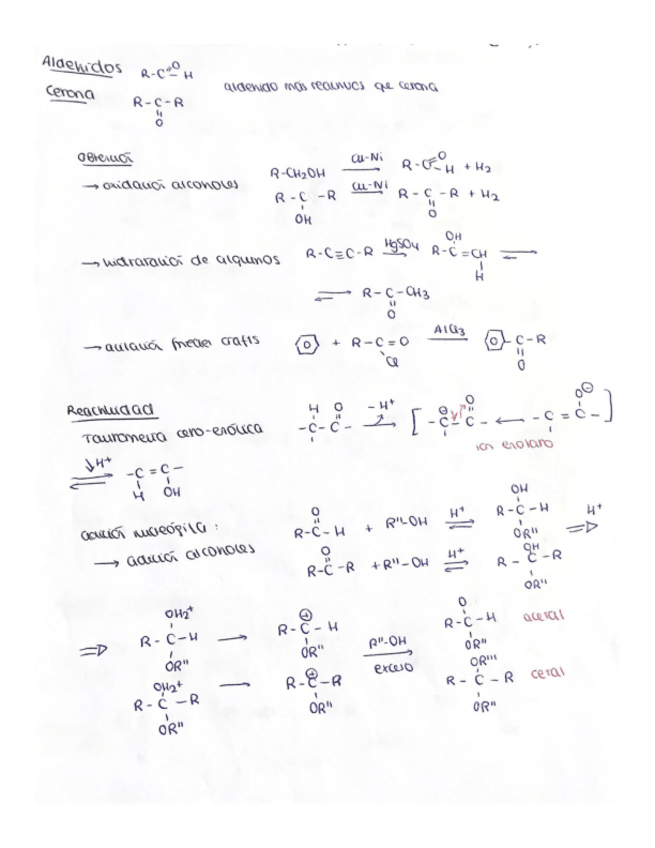 Aldehidos R-C=O H
Cetona R-C-R aldehido más reactivos que cetona
O
Obtención
→ oxidación alcoholes R-CH2OH Cu-Ni R-C=O H + H2
R-C-R Cu-Ni R-C-R + H2
OH O
→ hidratación de alquinos R-C≡C-R HgSO4 R-C=CH
OH H
⇌ R-C-CH3
O
→ acilación friedel crafts + R-C=O AlCl3 -C-R
Cl O
Reactividad
Tautomería ceto-enólica -C-C- -H+ [-C-C- ← -C=C-]
H O ⊖ O O⊖
ion enolato
H+ -C=C-
H OH
adición nucleófila:
→ adición alcoholes R-C-H + R''-OH H+ R-C-H H+
O OH OR''
R-C-R + R''-OH H+ R-C-R
O OH OR''
⇒ R-C-H → R-C-H R''-OH R-C-H acetal
OH2+ OR'' ⊕ OR'' exceso O OR''
R-C-R → R-C-R R-C-R cetal
OH2+ OR'' ⊕ OR'' OR''' OR''